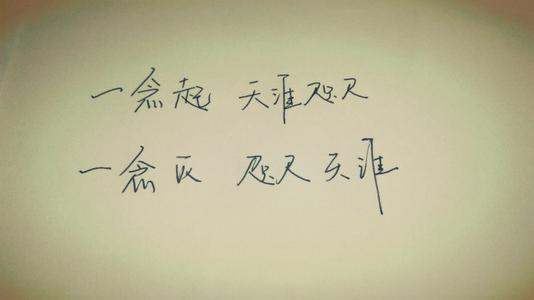 一念起 天涯咫尺
一念灭 咫尺天涯